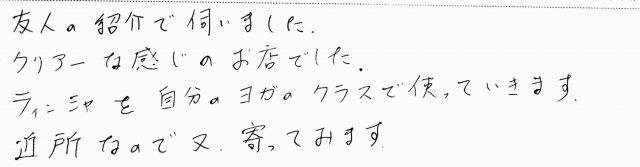 友人の紹介で伺いました.
クリアーな感じのお店でした.
ティンシャを自分のヨガのクラスで使っていきます.
近所なので又.寄ってみます.